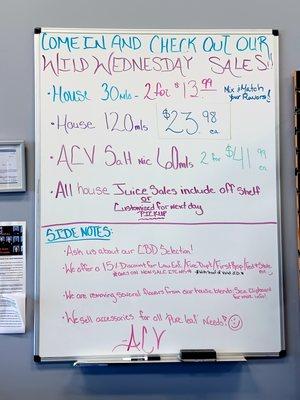 COME IN AND CHECK OUT OUR
WILD WEDNESDAY SALES!!
• House 30mls - 2 for $13.99 Mix & Match
Your Flavors!
• House 120mls $23.98 ea
• ACV Salt Nic 60mls 2 for $41.99 ea
• All house Juice Sales include off Shelf
OR
Customized for next day
PICKUP
SIDE NOTES:
• Ask us about our CBD Selection!
• We offer a 15% Discount for Law Enf./Fire Dept/First Resp/
• We are removing several flavors from our house blends. See Clipboard
for more info!
• We sell accessories for all Pure leaf Needs!
- ACV